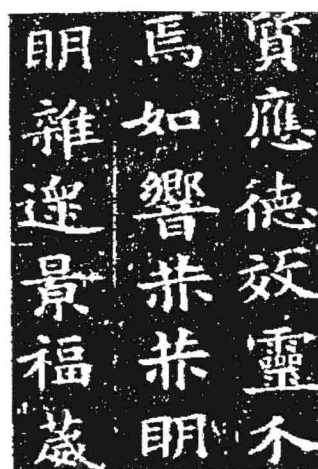 質應德效靈介
焉如響赫赫明
明雜遝景福葳